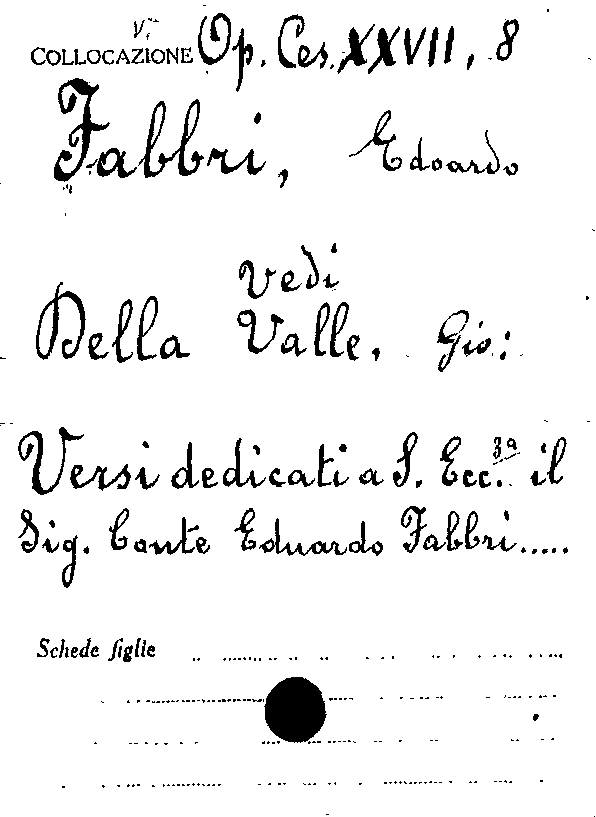 V.
COLLOCAZIONE Op. Ces. XXVII, 8
Fabbri, Edoardo
Vedi
Della Valle, Gio:
Versi dedicati a S. Ecc.za il
Sig. Conte Eduardo Fabbri.....
Schede figlie